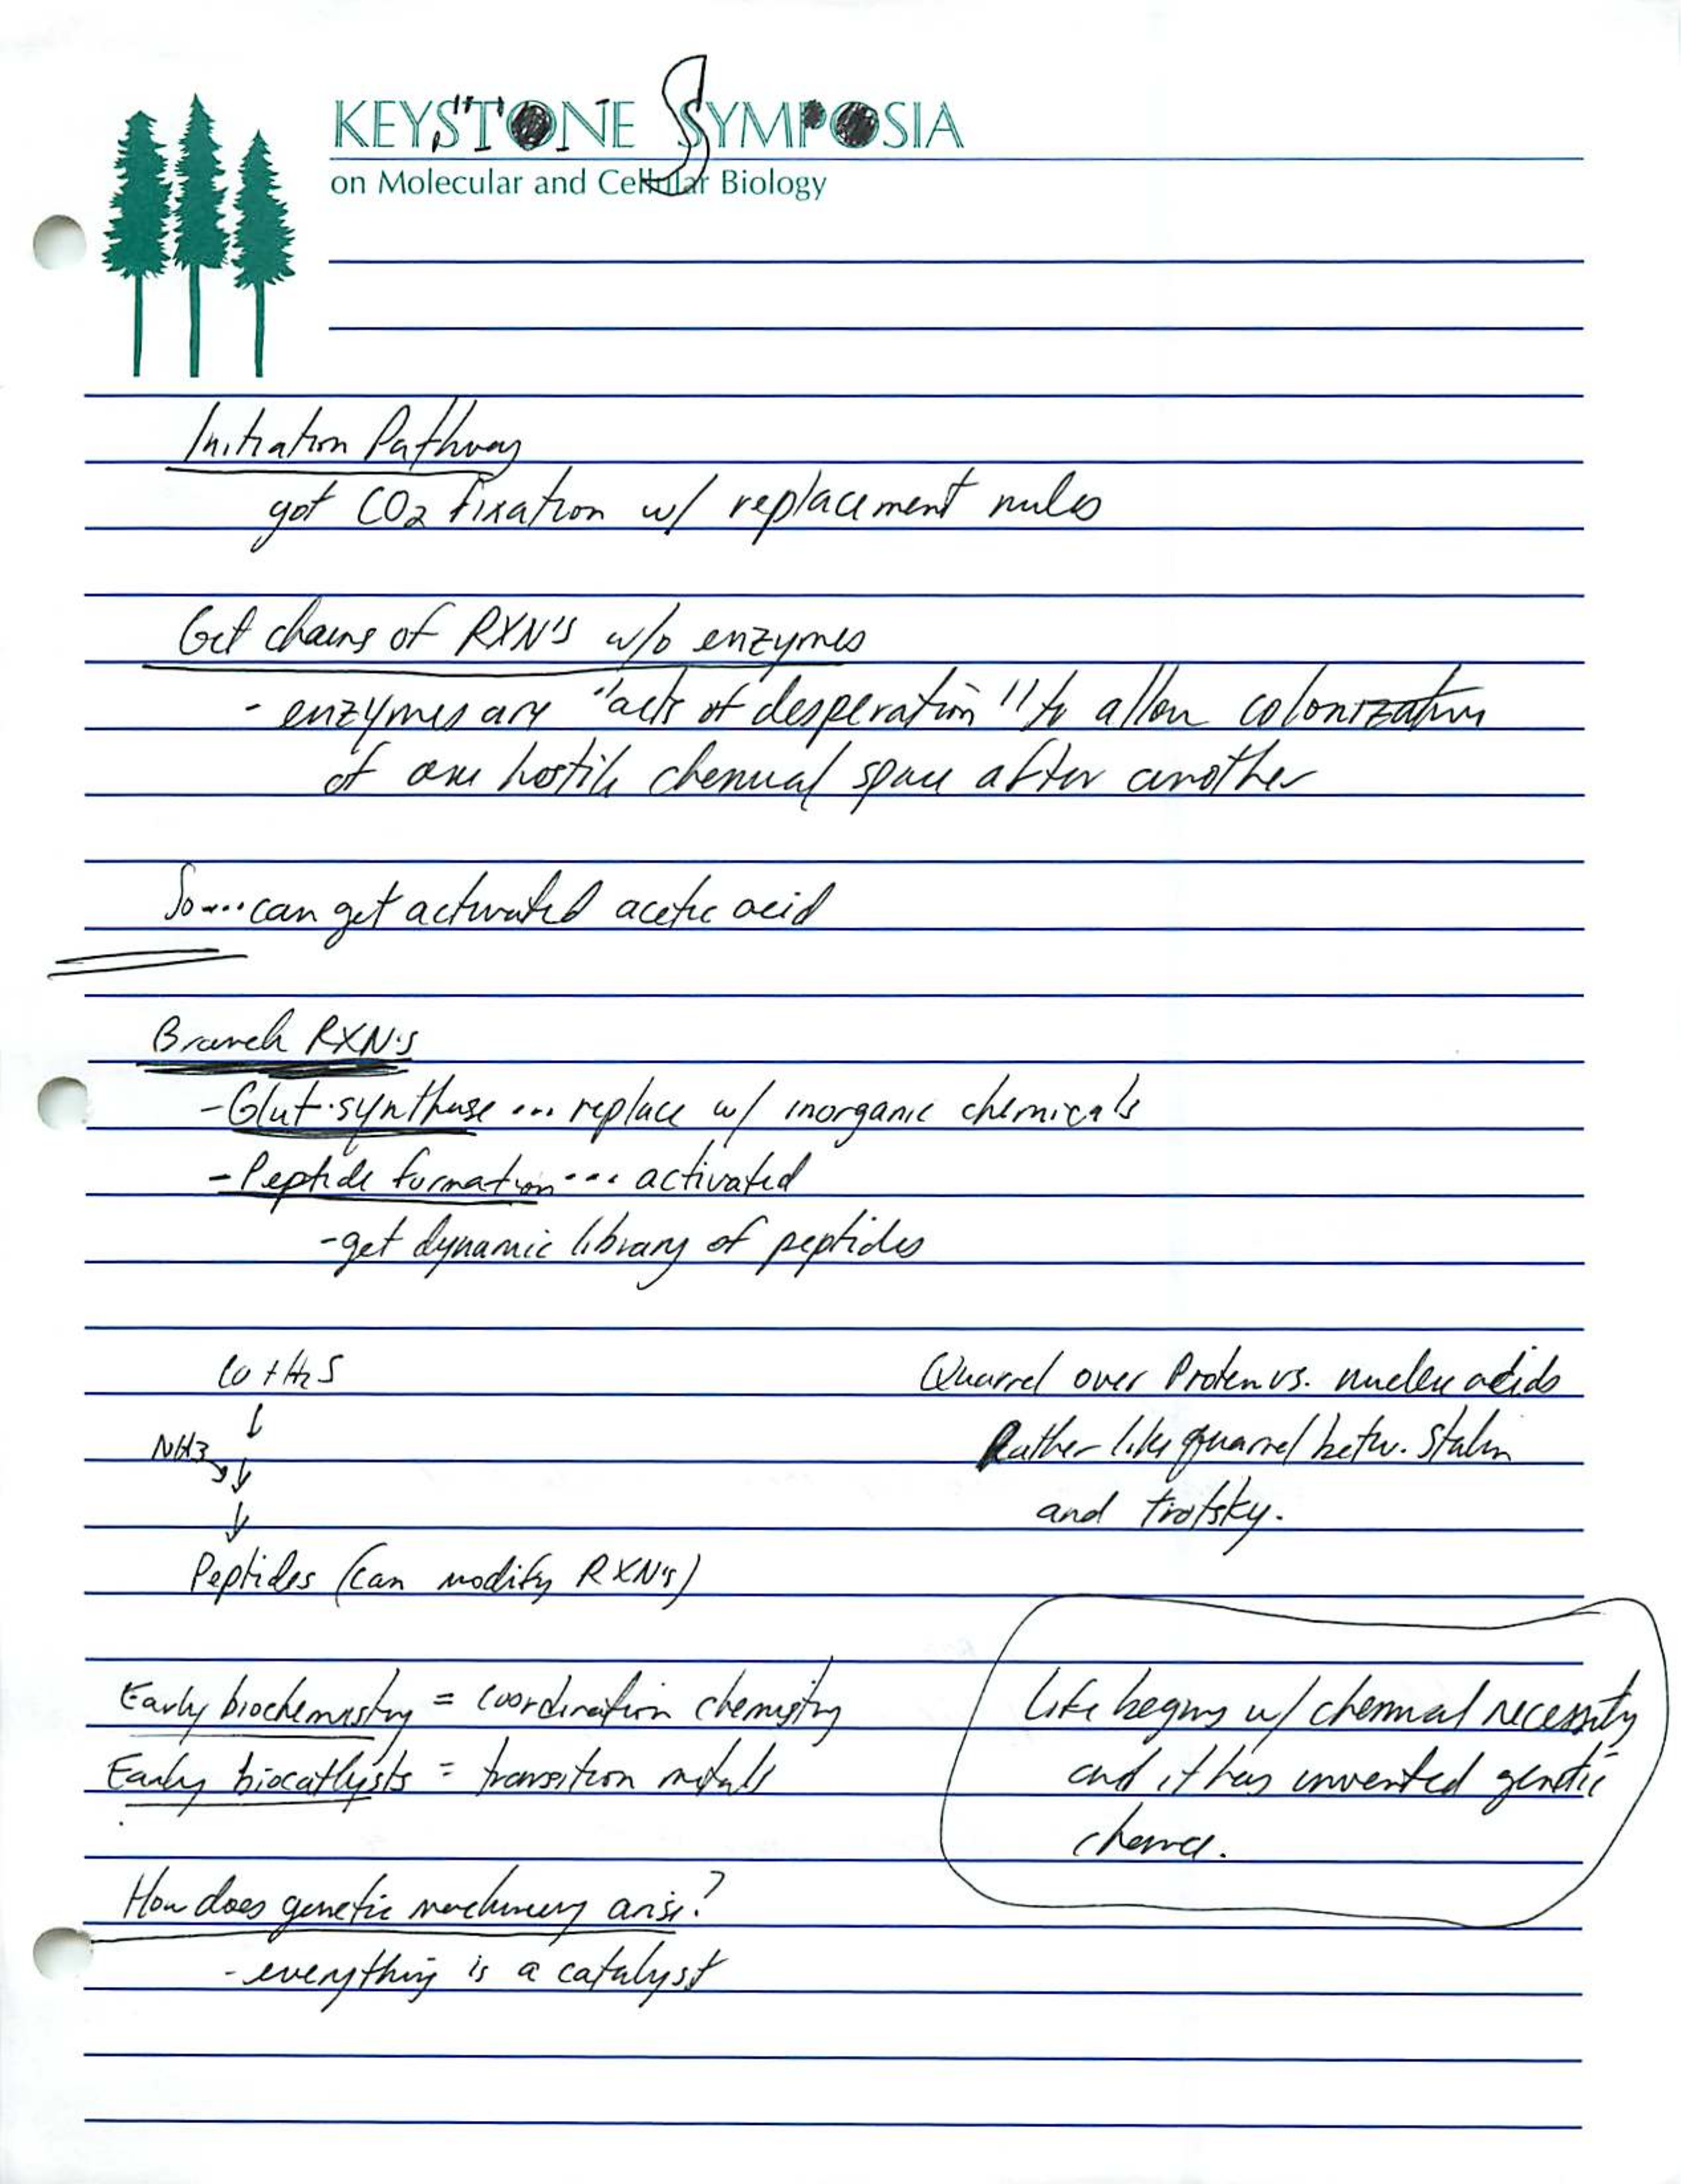 KEYSTONE SYMPOSIA
on Molecular and Cellular Biology
Initiation Pathway
got CO2 fixation w/ replacement rules
Get chains of RXN's w/o enzymes
- enzymes are "acts of desperation" to allow colonization
of one hostile chemical space after another
So....can get activated acetic acid
Branch RXN's
- Glut. synthase ... replace w/ inorganic chemicals
- Peptide formation ... activated
- get dynamic library of peptides
CO + H2S
↓
NH3 ↓
↓
Peptides (can modify RXN's)
Quarrel over Protein vs. nucleic acids
Rather like quarrel betw. Stalin
and Trotsky.
Early biochemistry = coordination chemistry
Early biocatlysts = transition metals
Life begins w/ chemical necessity
and it has invented genetic
chance.
How does genetic machinery arise?
- everything is a catalyst